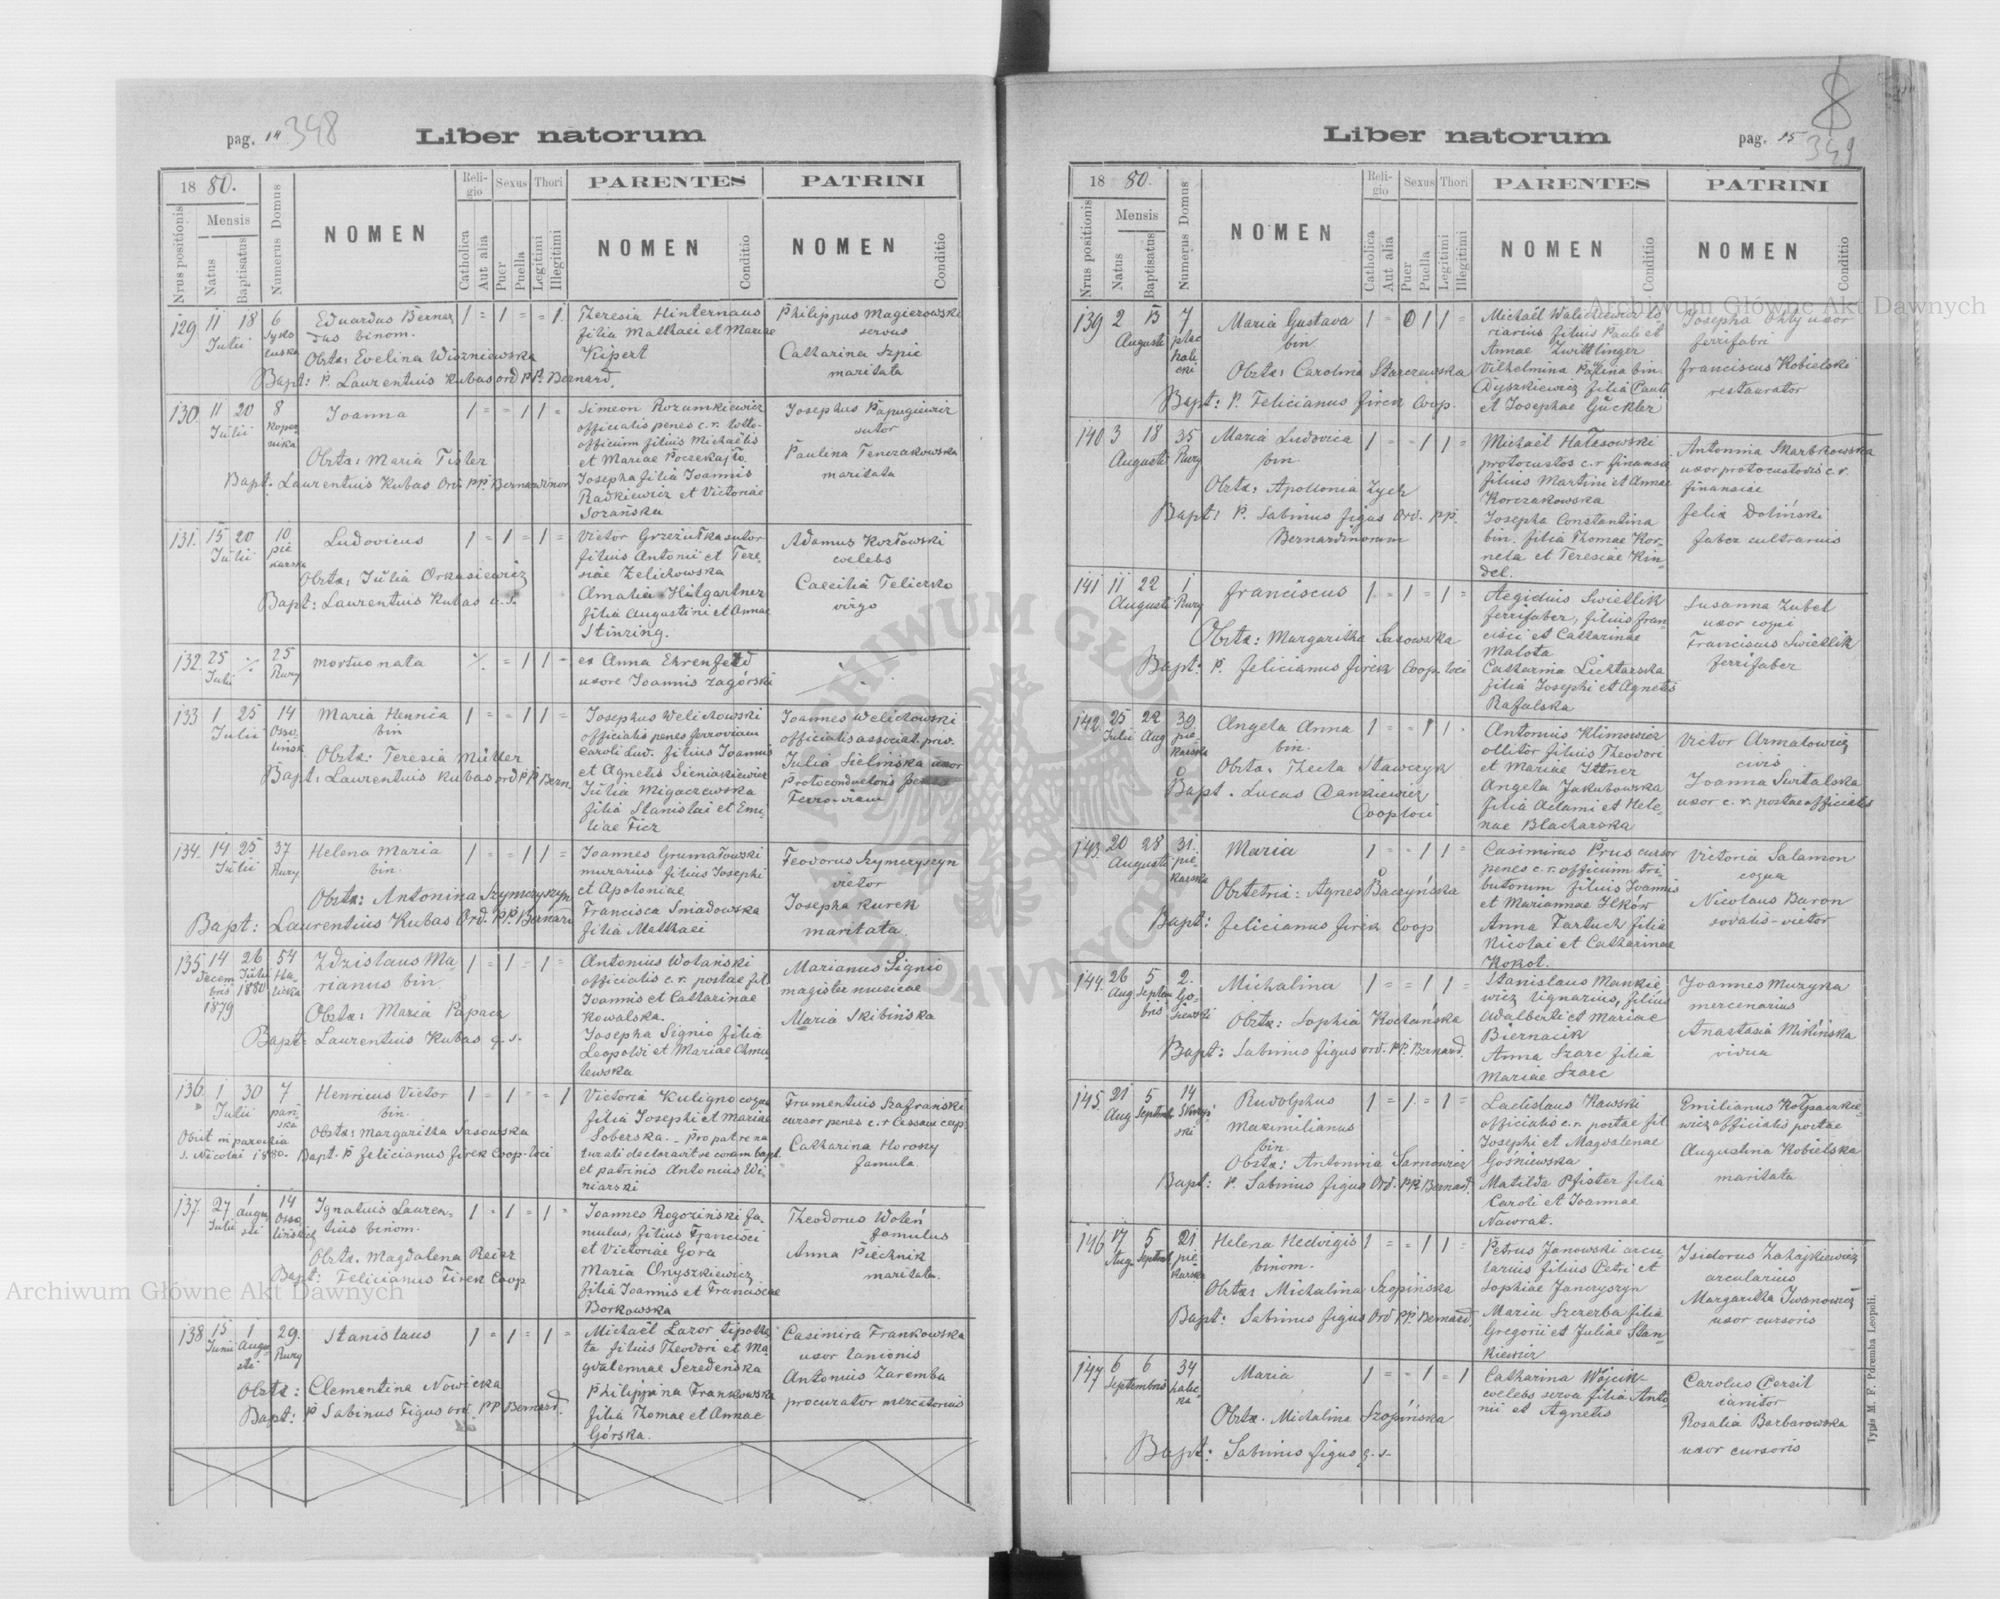 pag. 14 348
Liber natorum
1880.
Nrus positionis
Mensis
Natus
Baptisatus
Numerus Domus
NOMEN
Religio
Catholica
Aut alia
Sexus
Puer
Puella
Thori
Legitimi
Illegitimi
PARENTES
NOMEN
Conditio
PATRINI
NOMEN
Conditio
129 11 18 6
Julii
Eduardus Bernar
dus binom.
Obstx: Evelina Wiszniewska
Bapt: P. Laurentius Kubas ord PP. Bernard.
Theresia Hinternaus
filia Mathaei et Mariae
Kipert
Philippus Magierowski
servus
Catharina Szpic
maritata
130. 11 20 8
Julii
Koper
nika
Joanna
Obstx: Maria Tisler
Bapt. Laurentius Kubas Ord. PP. Bernardinor
Simeon Rozumkiewicz
officialis penes c.r. lotto-
officium filius Michaëlis
et Mariae Poczekajło.
Josepha filia Joannis
Radkiewicz et Victoriae
Sozańska
Josephus Papugiewicz
sutor
Paulina Tenczakowska
maritata
131. 15 20 10
Julii
pie
karska
Ludovicus
Obstx: Julia Orkasiewicz
Bapt: Laurentius Kubas q.s.
Victor Grzezułka sutor
filius Antonii et There-
siae Zelichowska
Amalia Hilgartner
filia Augustini et Annae
Stinzing.
Adamus Kozłowski
coelebs
Caecilia Teliczko
virgo
132. 25 25
Julii
Rury
mortuo nata
ex Anna Ehrenfeld
uxore Joannis Zagórski
133 1 25 14
Julii
Osso
lińsk
Maria Hennia
bin
Obstx: Teresia Müller
Bapt: Laurentius Kubas ord PP. Bern
Josephus Welichowski
officialis penes ferroviam
Caroli Lud. filius Joannis
et Agnetis Sieniakiewicz
Julia Migaczewska
filia Stanislai et Emi-
liae Ficz
Joannes Welichowski
officialis associat. priv.
Julia Sielinska uxor
Protoconductoris penes
Ferro-viam
134. 14 25 37
Julii
Rury
Helena Maria
bin.
Obstx: Antonina Szymczyszyn
Bapt: Laurentius Kubas Ord. PP. Bernard
Joannes Grumatowski
murarius filius Josephi
et Apoloniae
Francisca Sniadowska
filia Mathaei
Teodorus Szymczyszyn
vietor
Josepha Kurek
maritata
135. 14 26 54
Decem
bris
1879
Julii
1880
Ha-
licka
Zdzislaus Ma-
rianus bin.
Obstx: Maria Papacz
Bapt: Laurentius Kubas q. s.
Antonius Wolański
officialis c.r. postae fil
Joannis et Catharinae
Kowalska.
Josepha Signio filia
Leopoldi et Mariae Chmie
lewska
Marianus Signio
magister musicae
Maria Skibińska
136. 1 30 7
Julii
pań
ska
Henricus Victor
bin.
Obstx: Margaritha Sasowska
Obiit in parochia
s. Nicolai 1880.
Bapt. P Felicianus Firek Coop-loci
Victoria Kuligno coqua
filia Josephi et Mariae
Soberska. - Pro patre na
turali declaravit se coram bapt.
et patrinis Antonius Wi
niarski
Frumentius Szafranski
cursor penes c.r Cassam cap.
Catharina Horoszy
famula
137. 27 1 14
Julii
Augu
sti
Osso
lińskich
Ignatius Lauren-
tius binom.
Obstx. Magdalena Reisz
Bapt: Felicianus Firek Coop
Joannes Rogoziński fa-
mulus, filius Francisci
et Victoriae Gora
Maria Onyszkiewicz
filia Joannis et Franciscae
Borkowska
Theodorus Woleń
famulus
Anna Piechnik
maritata.
138. 15 1 29.
Junii
Augu
sti
Rury
Stanislaus
Obstx: Clementina Nowicka
Bapt: P Sabinus Figus ord. PP Bernard.
Michaël Lazor tipothe
ta filius Theodori et Ma
gdalennae Seredeńska
Philippina Frankowska
filia Thomae et Annae
Górska.
Casimira Frankowska
uxor lanionis
Antonius Zaremba
procurator mercatorius
Liber natorum
pag. 15
349
1880.
Nrus positionis
Mensis
Natus
Baptisatus
Numerus Domus
NOMEN
Religio
Catholica
Aut alia
Sexus
Puer
Puella
Thori
Legitimi
Illegitimi
PARENTES
NOMEN
Conditio
PATRINI
NOMEN
Conditio
139 2 13 7
Augusti
plac
hali
cki
Maria Gustava
bin
Obstx: Carolina Starczewska
Bapt: P. Felicianus Firek Coop.
Michaël Walickiewicz lo
riarius filius Pauli et
Annae Zwittlinger
Vilhelmina Paulina bin.
Dyszkiewicz filia Pauli
et Josephae Gückler
Josepha Ohly uxor
ferrifabri
Franciscus Kobielski
restaurator
140. 3 18 35
Augusti
Rury
Maria Ludovica
bin.
Obstx: Apollonia Zych
Bapt: P. Sabinus Figus Ord. PP.
Bernardinorum
Michaël Hałasowski
protocustos c.r finansa
filius Martini et Annae
Korczakowska
Josepha Constantina
bin. filia Thomae Kor-
neta et Teresiae Kin-
del.
Antonina Skarbkowska
uxor protocustodis c.r.
finansiae
Felix Doliński
faber cultrarius
141 11 22 1
Augusti
Rury
Franciscus
Obstx: Margaritha Sasowska
Bapt: P. Felicianus Firek Coop. loci
Aegidius Swietlik
ferrifaber, filius Fran-
cisci et Catharinae
Malota
Catharina Lichtarska
filia Josephi et Agnetis
Rafalska
Susanna Zubel
uxor coqui
Franciscus Swietlik
ferrifaber
142. 25 22 39.
Julii
Aug
pie
karska
Angela Anna
bin.
Obstx. Thecla Stawczyk
Bapt. Lucas Dankiewicz
Cooploci
Antonius Klimowicz
ollitor filius Theodori
et Mariae Ittner
Angela Jakubowska
filia Adami et Hele-
nae Blacharska
Victor Armatowicz
civis
Joanna Switalska
uxor c. r. postae officialis
143. 20 28 31.
Augusti
pie-
karska
Maria
Obstetrix: Agnes Baczyńska
Bapt: P Felicianus Firek Coop
Casimirus Prus cursor
penes c.r. officium tri-
butorum filius Joannis
et Mariannae Ilków
Anna Fartuch filia
Nicolai et Catharinae
Kokot.
Victoria Salamon
coqua
Nicolaus Baron
sodalis-vietor
144. 26 5 2.
Aug
Septem
bris
Michalina
Obstx: Sophia Kochańska
Bapt: Sabinus Figus ord. PP. Bernard.
Stanislaus Mankie-
wicz lignarius, filius
Adalberti et Mariae
Biernacik
Anna Szarc filia
Mariae Szarc
Joannes Muzyka
mercenarius
Anastasia Mikińska
vidua
145. 21 5 14
Aug
Septemb
Rudolphus
Maximilianus
bin.
Obstx: Antonina Sarnowicz
Bapt: P. Sabinus Figus Ord. PP. Bernard.
Ladislaus Kawski
officialis c.r. postae fil
Josephi et Magdalenae
Gośniewska
Matilda Pfister filia
Caroli et Joannae
Nawrat.
Emilianus Kołpaczkie-
wicz officialis postae
Augustina Kobielska
maritata
146 17 5 21
Aug.
Septemb
pie
karska
Helena Hedvigis
binom.
Obstx: Michalina Szopińska
Bapt: Sabinus Figus Ord PP. Bernard
Petrus Janowski arcu
larius filius Petri et
Sophiae Janczyszyn
Maria Szczerba filia
Gregorii et Juliae Stan-
kiewicz
Isidorus Zahajkiewicz
arcularius
Margaritha Iwanowicz
uxor cursoris
147 6 6 34
Septembris
halic
ka
Maria
Obstx. Michalina Szopińska
Bapt: Sabinus Figus q. s-
Catharina Wójcik-
coelebs serva filia Anto
nii et Agnetis
Carolus Persil
ianitor
Rosalia Barbarowska
uxor cursoris
Typis M. F. Poremba Leopoli.
Archiwum Główne Akt Dawnych
Archiwum Główne Akt Dawnych
ARCHIWUM GŁÓWNE AKT DAWNYCH